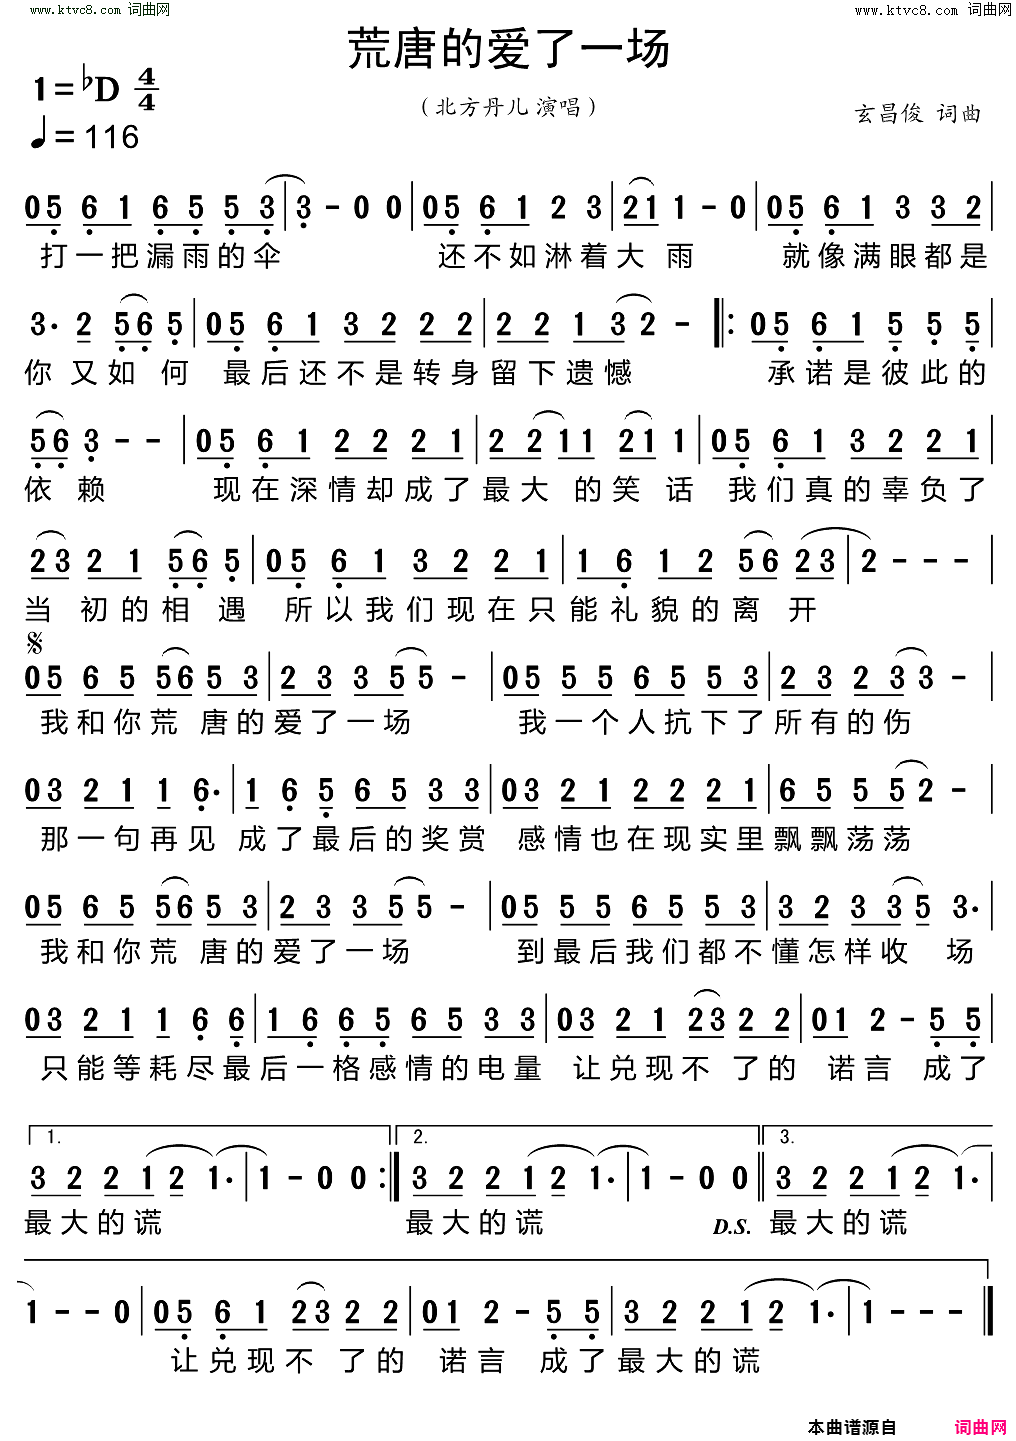 www.ktvc8.com 词曲网 www.ktvc8.com 词曲网
荒唐的爱了一场
1=♭D 4/4
（北方丹儿 演唱）
玄昌俊 词曲
♩=116
05 61 65 53 | 3 - 0 0 | 05 61 2 3 | 21 1 - 0 | 05 61 3 32 |
打一把漏雨的伞 还不如淋着大雨 就像满眼都是
3· 2 56 5 | 05 61 32 22 | 22 13 2 - |: 05 61 5 5 5 |
你又如何 最后还不是转身留下遗憾 承诺是彼此的
56 3 - - | 05 61 22 21 | 2 211 21 1 | 05 61 32 21 |
依赖 现在深情却成了最大的笑话 我们真的辜负了
23 21 56 5 | 05 61 32 21 | 16 12 56 23 | 2 - - - |
当初的相遇 所以我们现在只能礼貌的离开
𝄋
05 65 56 53 | 23 35 5 - | 05 55 65 53 | 23 23 3 - |
我和你荒唐的爱了一场 我一个人抗下了所有的伤
03 21 1 6· | 1 6 5 65 33 | 03 21 22 21 | 65 55 2 - |
那一句再见 成了最后的奖赏 感情也在现实里飘飘荡荡
05 65 56 53 | 23 35 5 - | 05 55 65 53 | 32 33 5 3· |
我和你荒唐的爱了一场 到最后我们都不懂怎样收场
03 21 1 6 6 | 16 65 65 33 | 03 21 23 22 | 01 2 - 55 |
只能等耗尽最后一格感情的电量 让兑现不了的诺言成了
1. 2. 3.
32 21 2 1· | 1 - 0 0 :| 32 21 2 1· | 1 - 0 0 || 32 21 2 1· |
最大的谎 最大的谎 D.S. 最大的谎
1 - - 0 | 05 61 23 22 | 01 2 - 55 | 32 21 2 1· | 1 - - - ||
让兑现不了的诺言成了最大的谎
本曲谱源自 词曲网